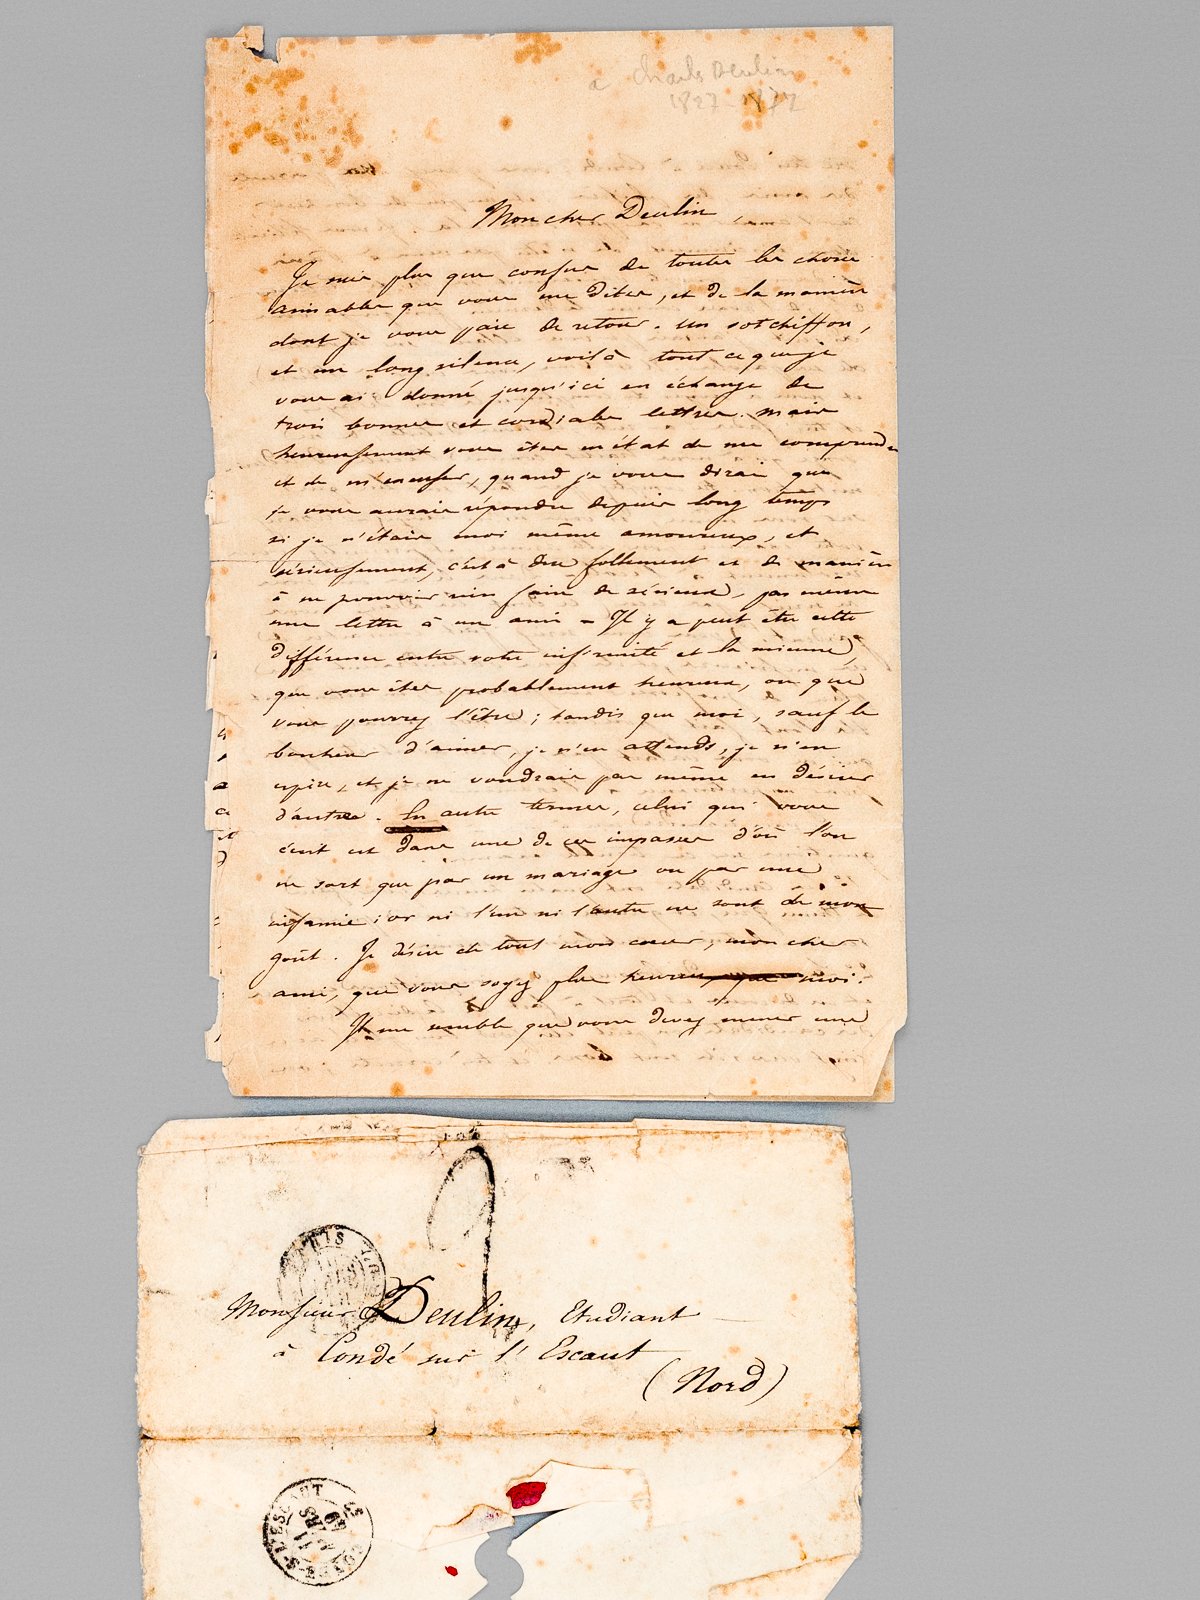 à Charles Deulin
1827-1877
Mon cher Deulin,
Je suis plus que confus de toutes les choses
aimables que vous me dites, et de la manière
dont je vous paie de retour. Un sot chiffon,
et un long silence, voilà tout ce que je
vous ai donné jusqu'ici en échange de
trois bonnes et cordiales lettres. Mais
heureusement vous êtes en état de me comprendre
et de m'excuser, quand je vous dirai que
je vous aurais répondu depuis long temps
si je n'étais moi même amoureux, et
sérieusement, c'est à dire follement et de manière
à ne pouvoir rien faire de sérieux, pas même
une lettre à un ami - Il y a peut être cette
différence entre votre infirmité et la mienne,
que vous êtes probablement heureux, ou que
vous pouvez l'être ; tandis que moi, sauf le
bonheur d'aimer, je n'en attends, je n'en
espère, et je ne voudrais pas même en désirer
d'autres. En autres termes, celui qui vous
écrit est dans une de ces impasses d'où l'on
ne sort que par un mariage ou par une
infamie ; or ni l'un ni l'autre ne sont de mon
goût. Je désire de tout mon cœur, mon cher
ami, que vous soyez plus heureux que moi.
Il me semble que vous devez mener une
PARIS
Monsieur Deulin, Etudiant
à Condé sur l'Escaut
(Nord)
CONDÉ-S-L'ESCAUT